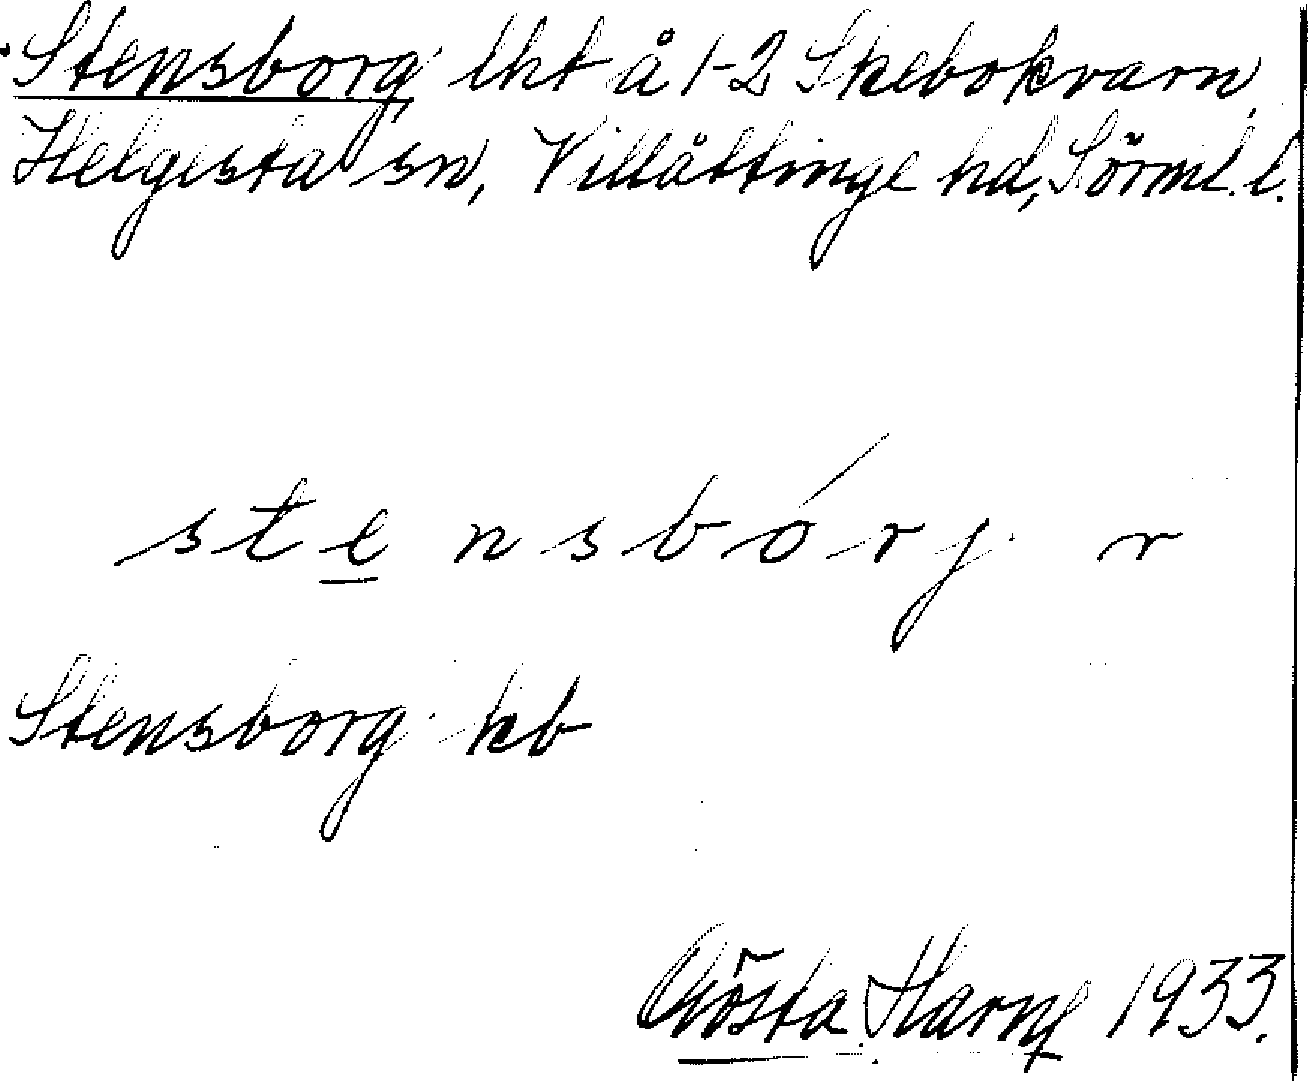 Stensborg lht å 1-2 Skebokvarn,
Helgesta sn, Villåttinge hd, Sörml. l.
stensbórj r
Stensborg kb
Gösta Harnf 1933.